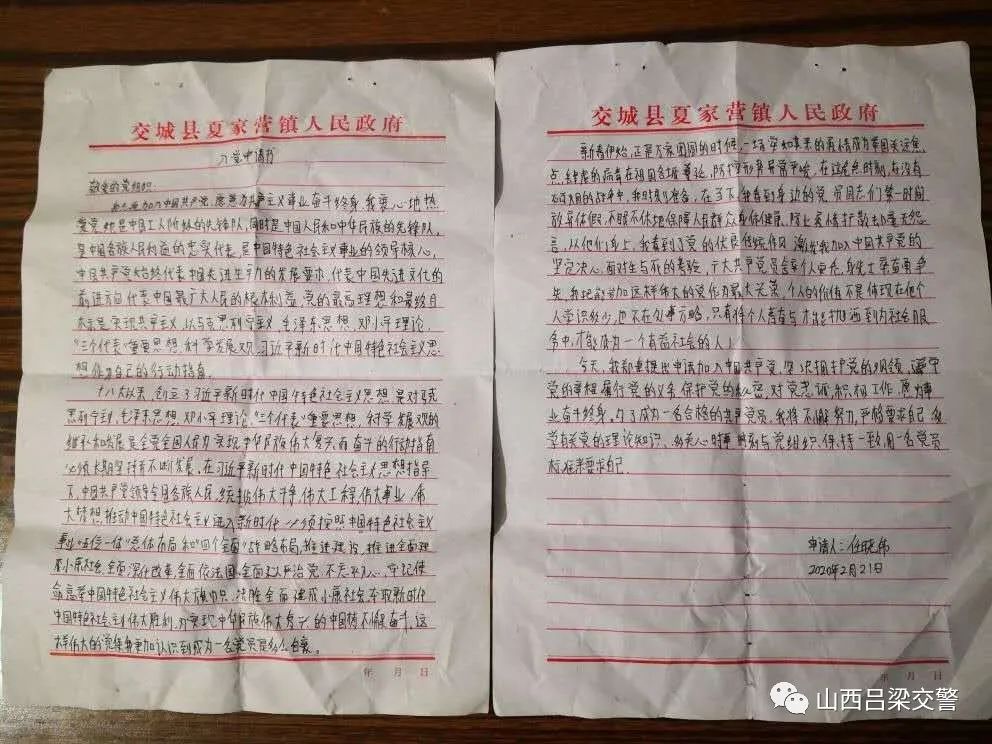 交城县夏家营镇人民政府
入党申请书
敬爱的党组织:
我志愿加入中国共产党,愿意为共产主义事业奋斗终身,我衷心地热
爱党,她是中国工人阶级的先锋队,同时是中国人民和中华民族的先锋队,
是中国各族人民利益的忠实代表,是中国特色社会主义事业的领导核心,
中国共产党始终代表中国先进生产力的发展要求,代表中国先进文化的
前进方向,代表中国最广大人民的根本利益,党的最高理想和最终目
标是实现共产主义,以马克思列宁主义、毛泽东思想、邓小平理论、
"三个代表"重要思想、科学发展观、习近平新时代中国特色社会主义思
想作为自己的行动指南。
十八大以来,创立了习近平新时代中国特色社会主义思想是对马克
思列宁主义、毛泽东思想、邓小平理论、"三个代表"重要思想、科学发展观的
继承和发展,是全党全国人民为实现中华民族伟大复兴而奋斗的行动指南
必须长期坚持并不断发展。在习近平新时代中国特色社会主义思想指导
下,中国共产党领导全国各族人民,统揽伟大斗争、伟大工程、伟大事业、伟
大梦想,推动中国特色社会主义进入新时代,必须按照中国特色社会主义
事业"五位一体"总体布局和"四个全面"战略布局,推进建设,推进全面建
成小康社会、全面深化改革、全面依法治国、全面从严治党,不忘初心,牢记使
命,高举中国特色社会主义伟大旗帜,决胜全面建成小康社会,夺取新时代
中国特色社会主义伟大胜利,为实现中华民族伟大复兴的中国梦不懈奋斗。这
样伟大的党使我更加认识到成为一名党员是多么自豪。
年 月 日
交城县夏家营镇人民政府
新春伊始,正是大家团圆的时候,一场突如其来的疫情成为举国关注焦
点,肆虐的病毒在祖国各地蔓延,防控形势异常严峻,在这危急时刻,在没有
硝烟的战争中,我时刻准备着,在了不,我看到身边的党员同志们第一时间
放弃休假,不眠不休地保障人民群众身体健康,防止疫情扩散去办毫无怨
言,从他们身上,我看到了党的优良传统作风,激发我加入中国共产党的
坚定决心,面对生与死的考验,广大共产党员舍家人更危,身先士卒奋勇争
先,我把能参加这样伟大的党作为最大光荣,个人的价值不是体现在他个
人学识多少,也不在处事方略,只有将个人青春与才能投洒到为社会服
务中,才能成为一个有益社会的人。
今天,我郑重提出申请加入中国共产党,坚决拥护党的纲领,遵守
党的章程,履行党的义务,保护党的秘密,对党忠诚,积极工作,愿为事
业奋斗终身。为了成为一名合格的共产党员,我将不懈努力,严格要求自己,多
学相关党的理论知识,多关心时事,时刻与党组织保持一致,用一名党员
标准来要求自己。
申请人:任晓伟
2020年2月21日
年 月 日
山西吕梁交警